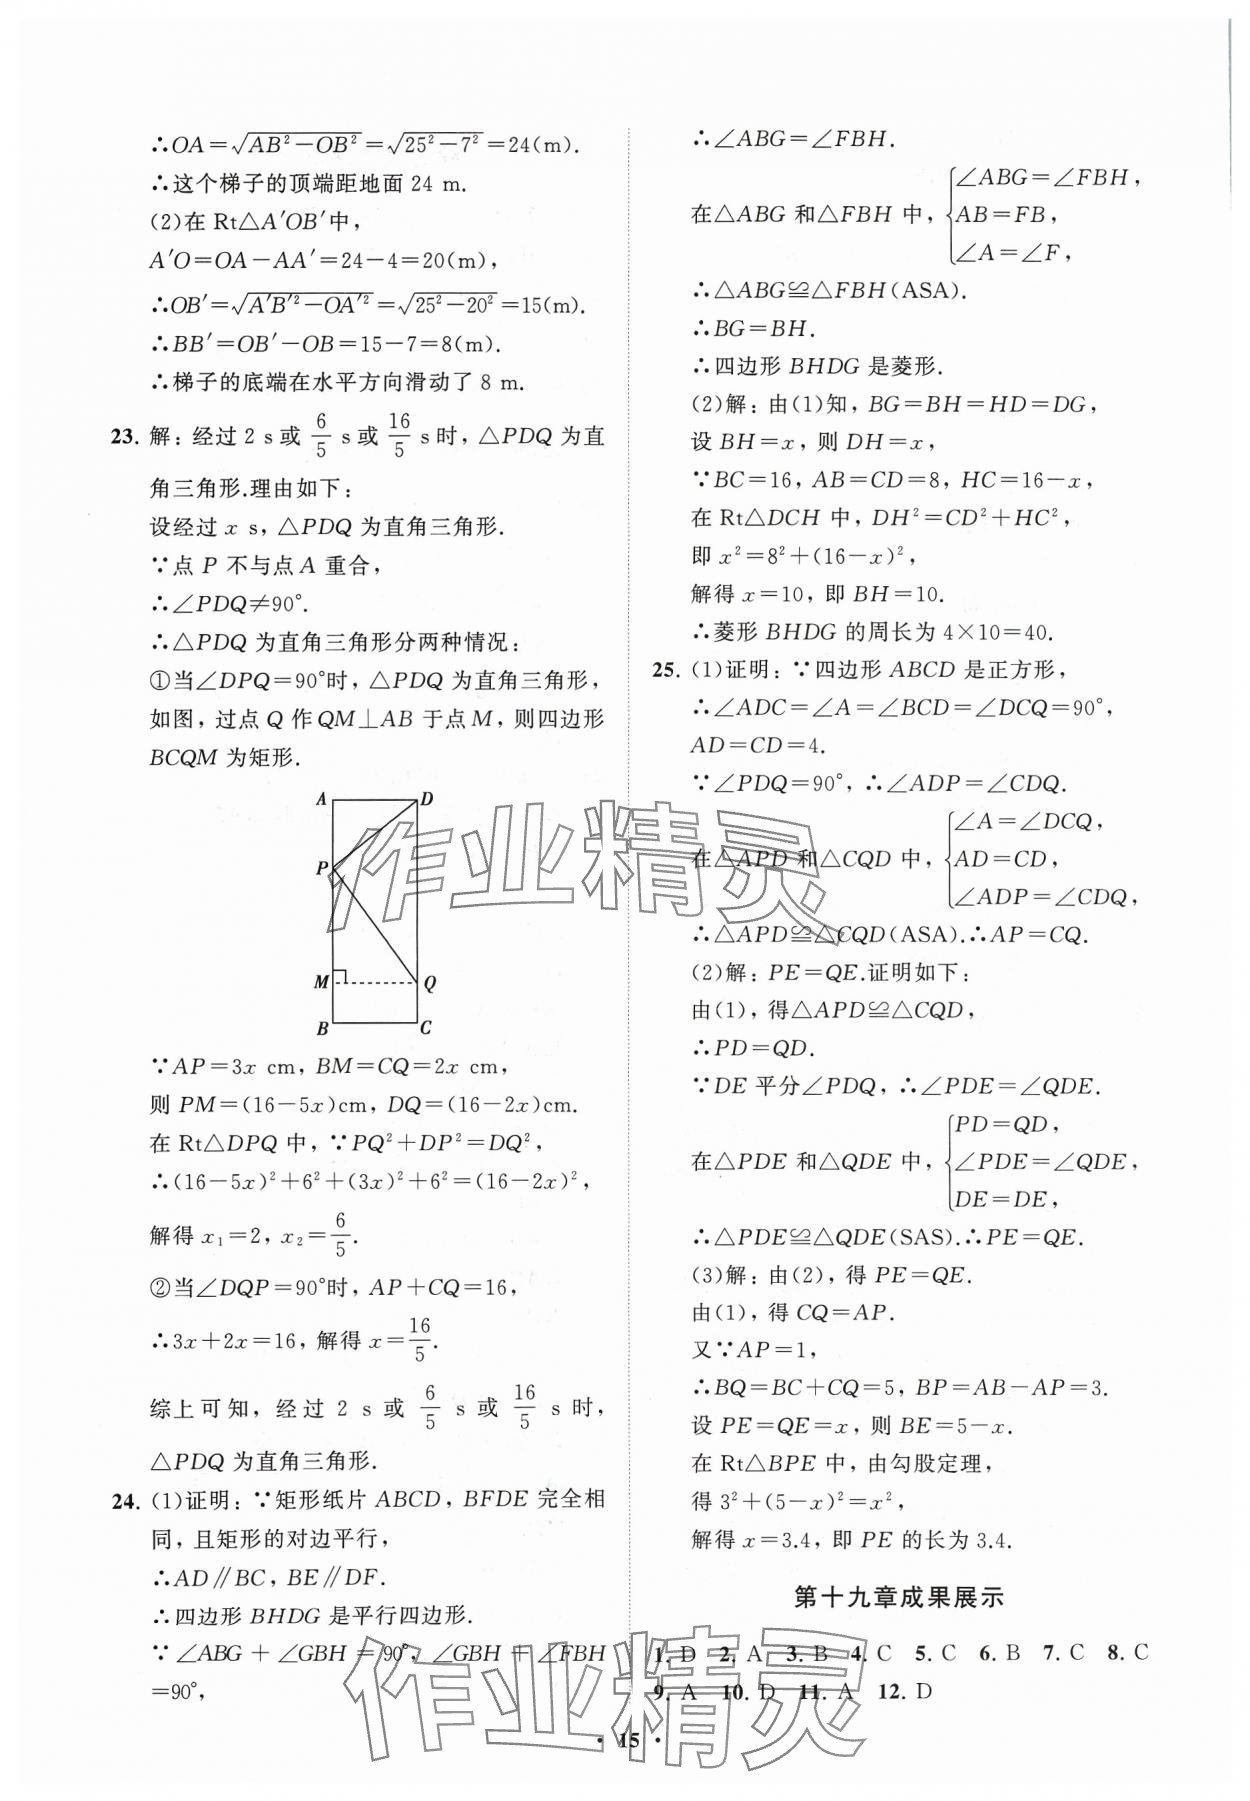 ∴OA=√(AB²-OB²)=√(25²-7²)=24(m).
∴这个梯子的顶端距地面 24 m.
(2)在 Rt△A′OB′中，
A′O=OA-AA′=24-4=20(m)，
∴OB′=√(A′B′²-OA′²)=√(25²-20²)=15(m).
∴BB′=OB′-OB=15-7=8(m).
∴梯子的底端在水平方向滑动了 8 m.
23. 解：经过 2 s或 6/5 s或 16/5 s时，△PDQ 为直
角三角形.理由如下：
设经过 x s，△PDQ 为直角三角形.
∵点 P 不与点 A 重合，
∴∠PDQ≠90°.
∴△PDQ 为直角三角形分两种情况：
①当∠DPQ=90°时，△PDQ 为直角三角形，
如图，过点 Q 作 QM⊥AB 于点 M，则四边形
BCQM 为矩形.
A D
P
M Q
B C
∵AP=3x cm，BM=CQ=2x cm，
则 PM=(16-5x)cm，DQ=(16-2x)cm.
在 Rt△DPQ 中，∵PQ²+DP²=DQ²，
∴(16-5x)²+6²+(3x)²+6²=(16-2x)²，
解得 x₁=2，x₂=6/5.
②当∠DQP=90°时，AP+CQ=16，
∴3x+2x=16，解得 x=16/5.
综上可知，经过 2 s 或 6/5 s 或 16/5 s 时，
△PDQ 为直角三角形.
24. (1)证明：∵矩形纸片 ABCD，BFDE 完全相
同，且矩形的对边平行，
∴AD∥BC，BE∥DF.
∴四边形 BHDG 是平行四边形.
∵∠ABG+∠GBH=90°，∠GBH+∠FBH
=90°，
∴∠ABG=∠FBH.
∠ABG=∠FBH，
在△ABG 和△FBH 中，{AB=FB，
∠A=∠F，
∴△ABG≌△FBH(ASA).
∴BG=BH.
∴四边形 BHDG 是菱形.
(2)解：由(1)知，BG=BH=HD=DG，
设 BH=x，则 DH=x，
∵BC=16，AB=CD=8，HC=16-x，
在 Rt△DCH 中，DH²=CD²+HC²，
即 x²=8²+(16-x)²，
解得 x=10，即 BH=10.
∴菱形 BHDG 的周长为 4×10=40.
25. (1)证明：∵四边形 ABCD 是正方形，
∴∠ADC=∠A=∠BCD=∠DCQ=90°，
AD=CD=4.
∵∠PDQ=90°，∴∠ADP=∠CDQ.
∠A=∠DCQ，
在△APD 和△CQD 中，{AD=CD，
∠ADP=∠CDQ，
∴△APD≌△CQD(ASA).∴AP=CQ.
(2)解：PE=QE.证明如下：
由(1)，得△APD≌△CQD，
∴PD=QD.
∵DE 平分∠PDQ，∴∠PDE=∠QDE.
PD=QD，
在△PDE 和△QDE 中，{∠PDE=∠QDE，
DE=DE，
∴△PDE≌△QDE(SAS).∴PE=QE.
(3)解：由(2)，得 PE=QE.
由(1)，得 CQ=AP.
又∵AP=1，
∴BQ=BC+CQ=5，BP=AB-AP=3.
设 PE=QE=x，则 BE=5-x.
在 Rt△BPE 中，由勾股定理，
得 3²+(5-x)²=x²，
解得 x=3.4，即 PE 的长为 3.4.
第十九章成果展示
1. D 2. A 3. B 4. C 5. C 6. B 7. C 8. C
9. A 10. D 11. A 12. D
· 15 ·
作业精灵
作业精灵